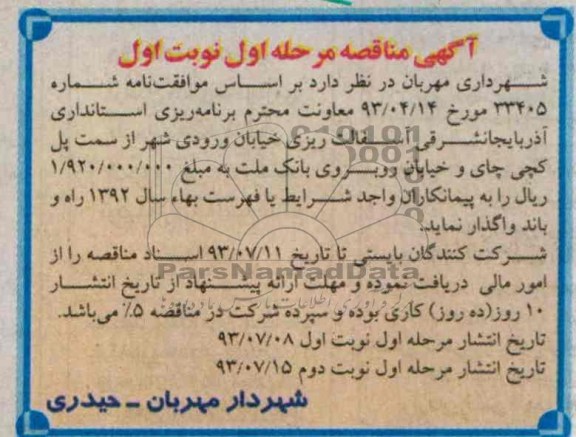 آگهی مناقصه مرحله اول نوبت اول
شهرداری مهربان در نظر دارد بر اساس موافقت‌نامه شماره
۳۳۴۰۵ مورخ ۹۳/۰۴/۱۴ معاونت محترم برنامه‌ریزی استانداری
آذربایجانشرقی اسفالت ریزی خیابان ورودی شهر از سمت پل
کچی چای و خیابان روبروی بانک ملت به مبلغ ۱/۹۲۰/۰۰۰/۰۰۰
ریال را به پیمانکاران واجد شرایط یا فهرست بهاء سال ۱۳۹۲ راه و
باند واگذار نماید.
شرکت کنندگان بایستی تا تاریخ ۹۳/۰۷/۱۱ اسناد مناقصه را از
امور مالی دریافت نموده و مهلت ارائه پیشنهاد از تاریخ انتشار
ParsNamadData
۱۰ روز(ده روز) کاری بوده و سپرده شرکت در مناقصه ۵٪ می‌باشد.
تاریخ انتشار مرحله اول نوبت اول ۹۳/۰۷/۰۸
تاریخ انتشار مرحله اول نوبت دوم ۹۳/۰۷/۱۵
شهردار مهربان ـ حیدری